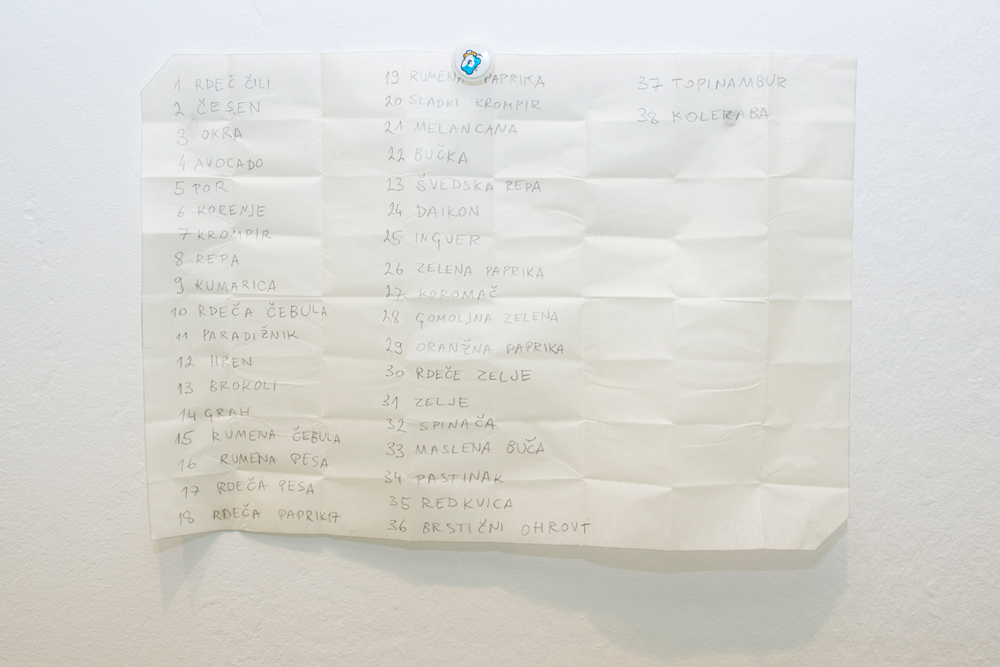 1 RDEČ ČILI
2 ČESEN
3 OKRA
4 AVOCADO
5 POR
6 KORENJE
7 KROMPIR
8 REPA
9 KUMARICA
10 RDEČA ČEBULA
11 PARADIŽNIK
12 HREN
13 BROKOLI
14 GRAH
15 RUMENA ČEBULA
16 RUMENA PESA
17 RDEČA PESA
18 RDEČA PAPRIKA
19 RUMENA PAPRIKA
20 SLADKI KROMPIR
21 MELANCANA
22 BUČKA
23 ŠVEDSKA REPA
24 DAIKON
25 INGVER
26 ZELENA PAPRIKA
27 KOROMAČ
28 GOMOLJNA ZELENA
29 ORANŽNA PAPRIKA
30 RDEČE ZELJE
31 ZELJE
32 SPINAČA
33 MASLENA BUČA
34 PASTINAK
35 REDKVICA
36 BRSTIČNI OHROVT
37 TOPINAMBUR
38 KOLERABA